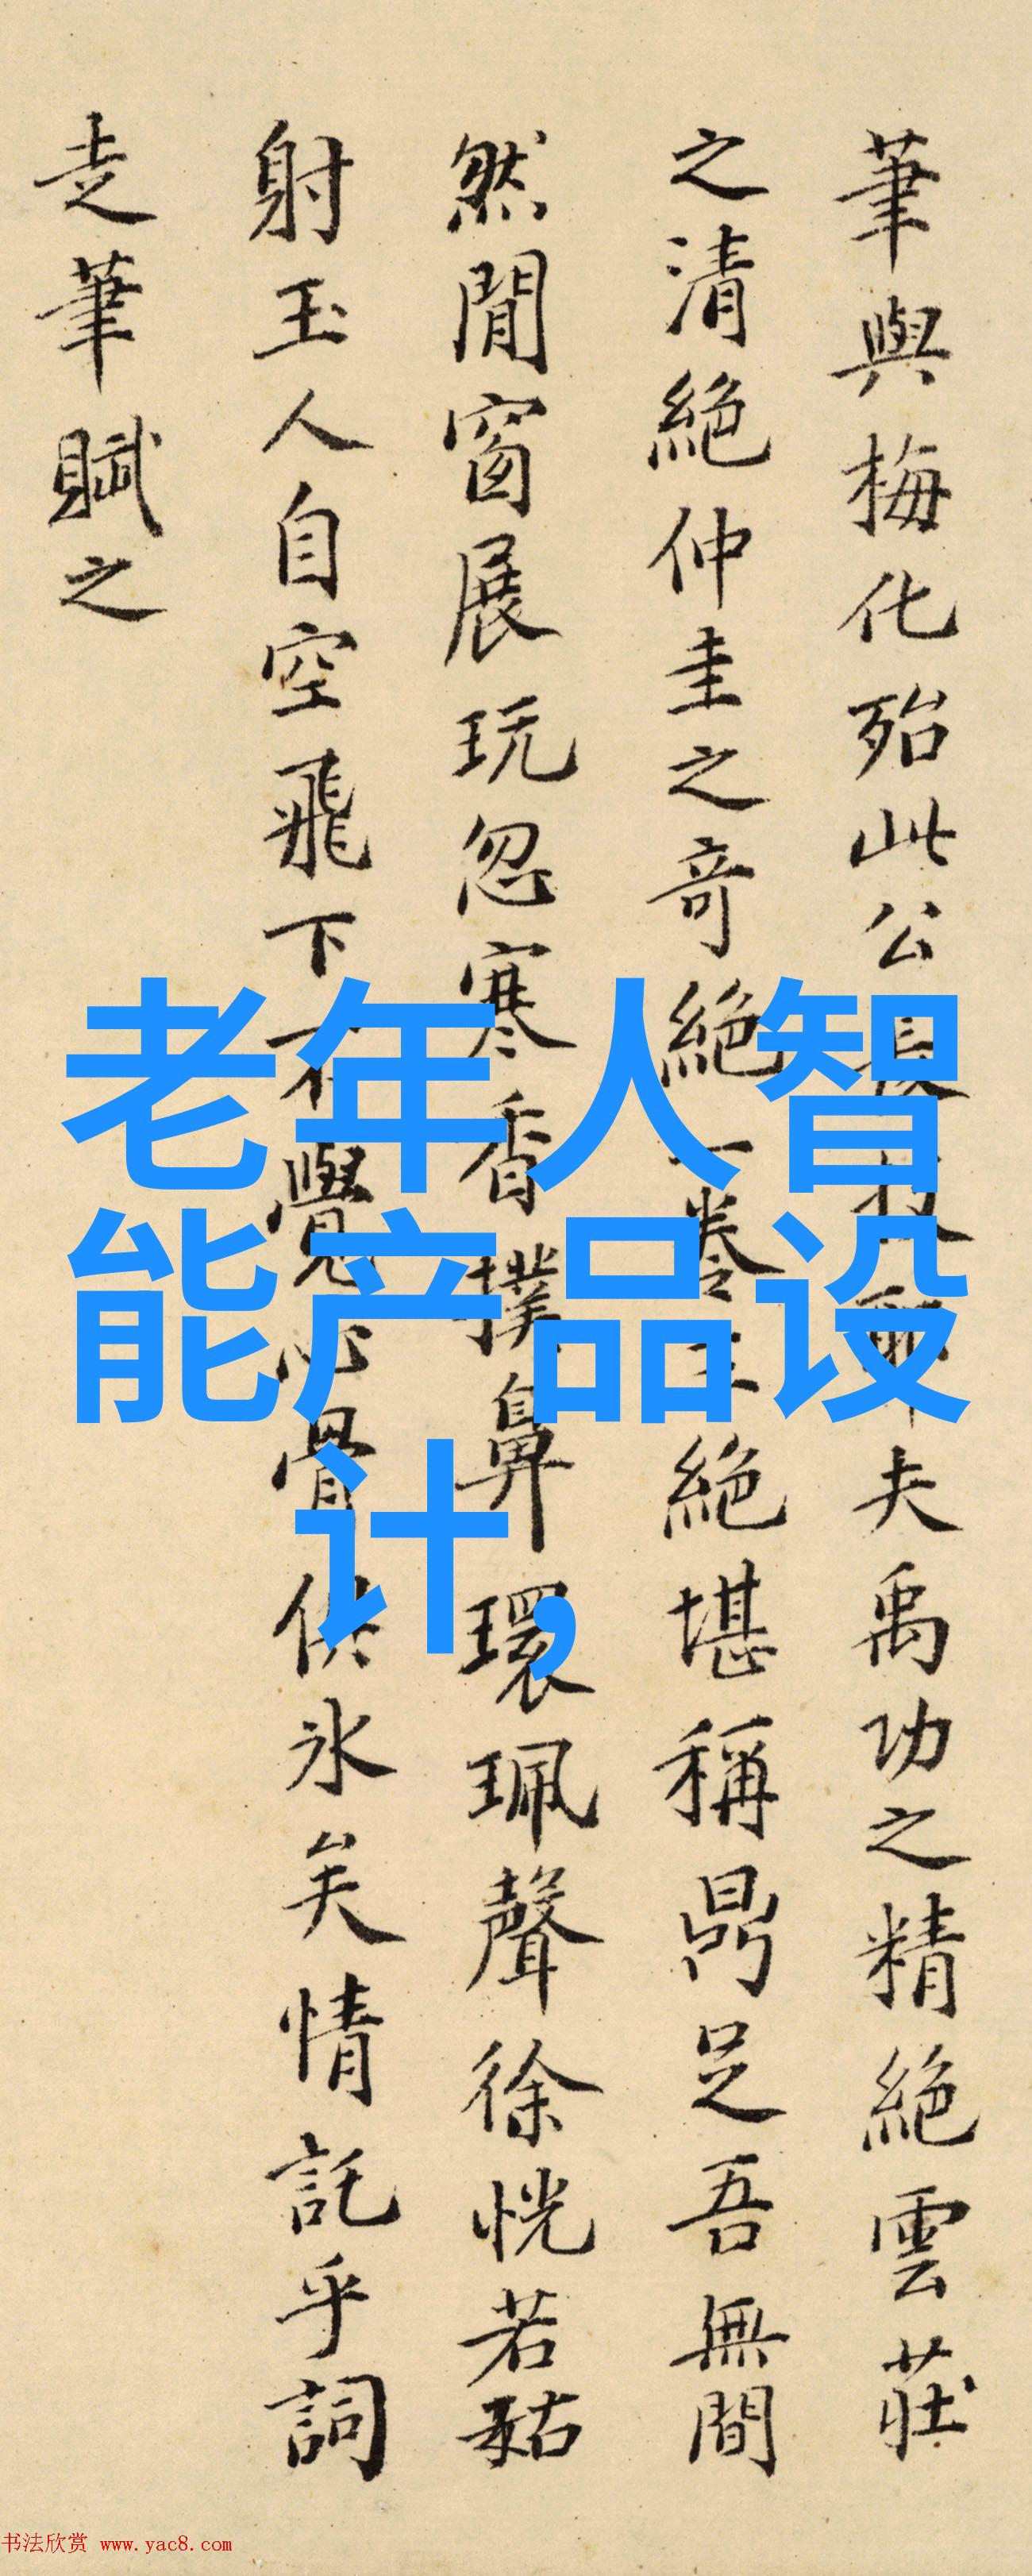 筆與梅化殆此公長技耶夫禹功之精絶雲莊
之清絶仲圭之竒絶一卷三絶堪稱鼎足吾無間
然閒窗展玩忽寒香撲鼻環珮聲徐恍若菇
射玉人自空飛下不覺心骨俱氷矣情託乎詞
走筆賦之
老年人智
能产品设
计,
书法欣赏 www.yac8.com